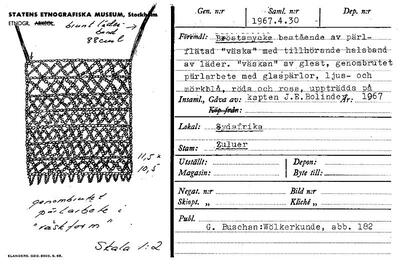 STATENS ETNOGRAFISKA MUSEUM, Stockholm
ETNOGR. ARKEOL.
brunt läder-
band
88 cm l
11,5 x
10,5
genombrutet
pärlarbete i
"räskform"
Skala 1:2
ELANDERS, GBG.
Gen. n:r
Saml. n:r
Dep. n:r
1967.4.30 -
Föremål: Bröstsmycke bestående av pärl-
flätad "väska" med tillhörande halsband
av läder. "väskan" av glest, genombrutet
pärlarbete med glaspärlor, ljus- och
mörkblå, röda och rosa, uppträdda på
Insaml., Gåva av: kapten J.E.Bolinder, År. 1967
Köp från:
Lokal: Sydafrika
Stam: Zuluer
Utställt:
Depon:
Magasin:
Byte till:
Negat. n:r
Bild n:r
Skiopt. „
Kliché „
Publ.
G. Buschan:Wölkerkunde, abb. 182